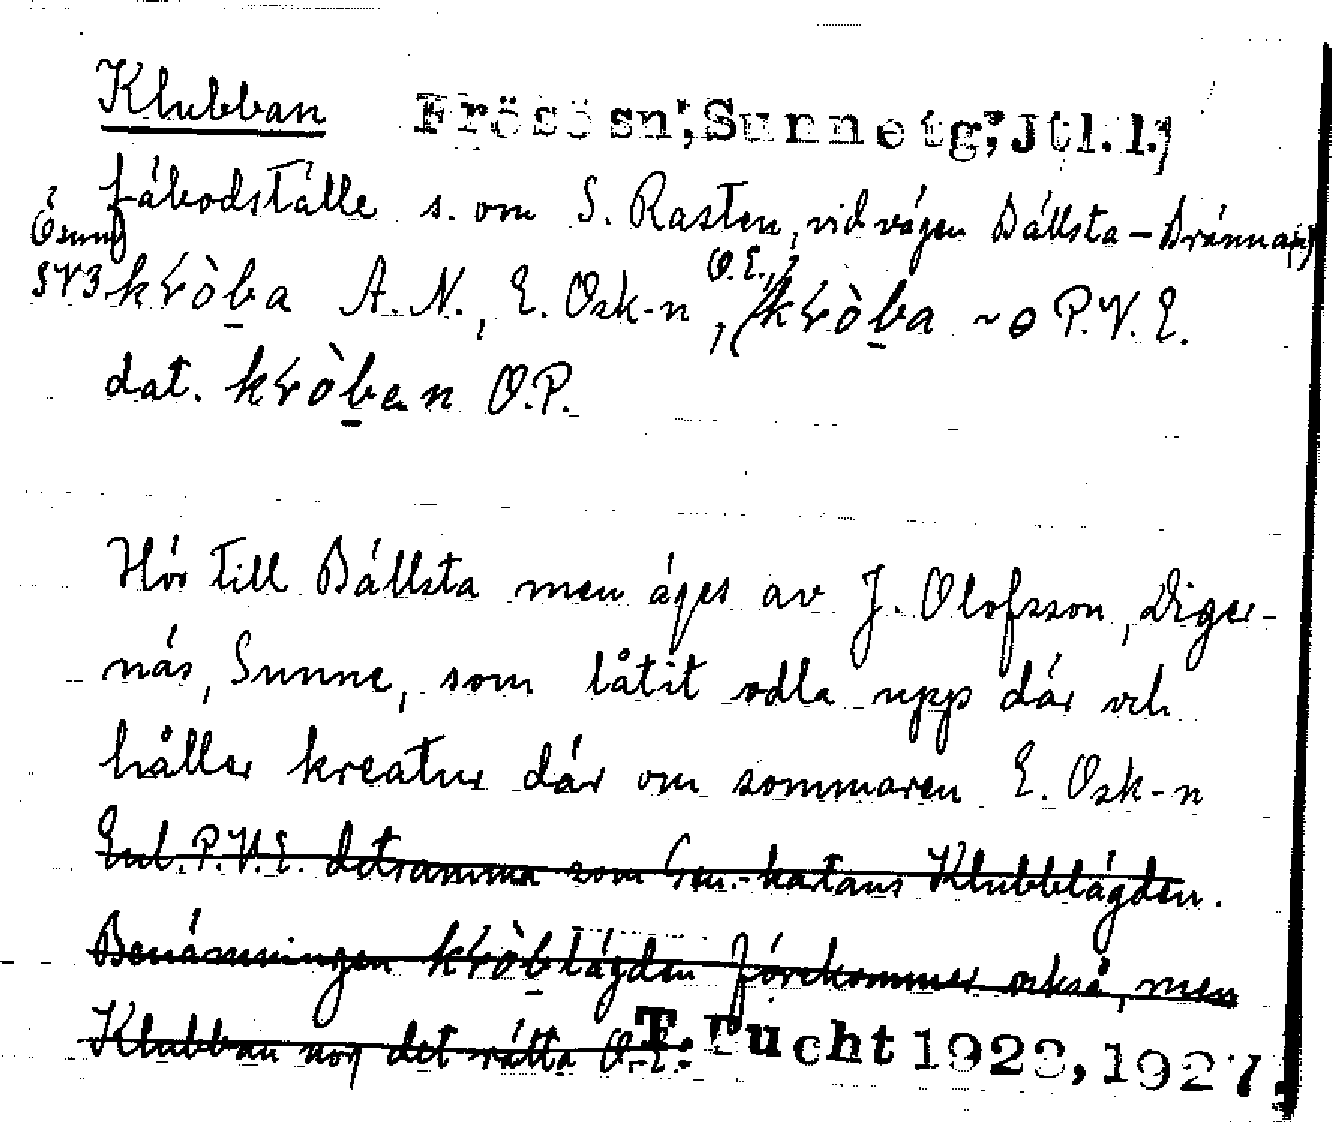 Klubban Frösösn, Sunne tg, Jtl. l.,
fäbodställe s. om S. Rasten, vid vägen Bällsta – Brännan)
Ö sunne
SV3 kròba A. N., E. Osk-n, O. E., (kròba ~ə P.V.E.
dat. kròban O.P.
Hör till Bällsta men äges av J. Olofsson, Diger-
näs, Sunne, som låtit odla upp där och
håller kreatur där om sommaren E. Osk-n
Enl. P.V.E. detsamma som Gen.-kartans Klubblägden.
Benämningen kròblägden förekommer också, men
Klubban nog det rätta O.E.
T. Tucht 1922, 1927,